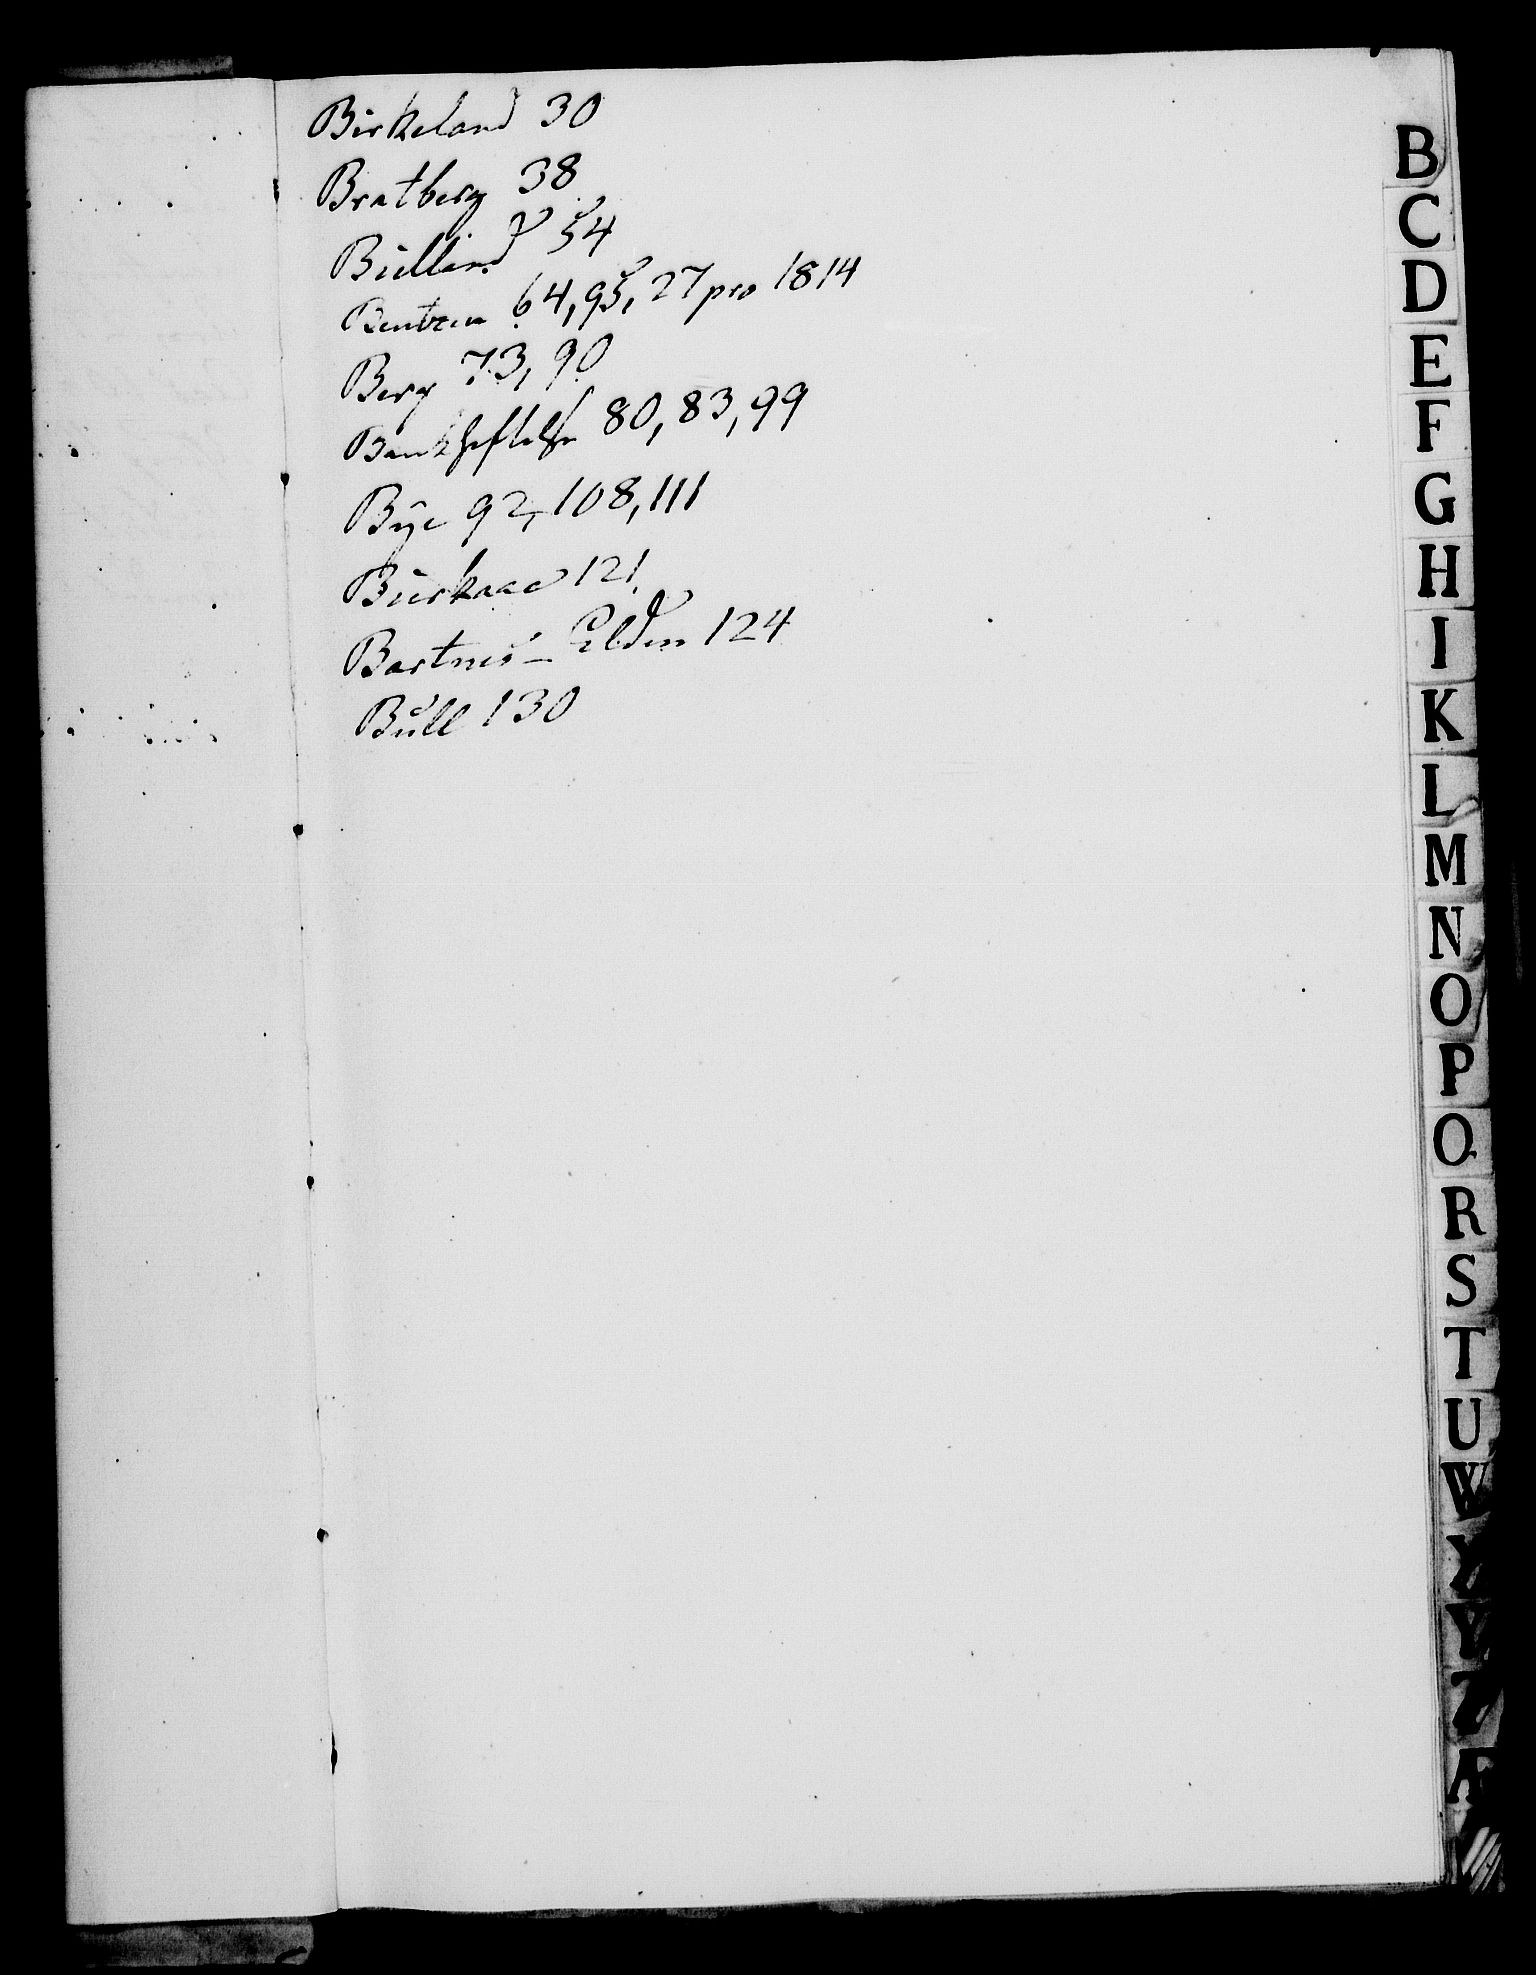 Birkeland 30
Bratberg 38
Bielland 54
Bentzen 64, 95, 27 pro 1814
Berg 73, 90
Bankheftelse 80, 83, 99
Bÿe 92, 108, 111
Bierkaae 121
Bartnes - Elden 124
Bull 130
B
C
D
E
F
G
H
I
K
L
M
N
O
P
Q
R
S
T
U
W
X
Y
Z